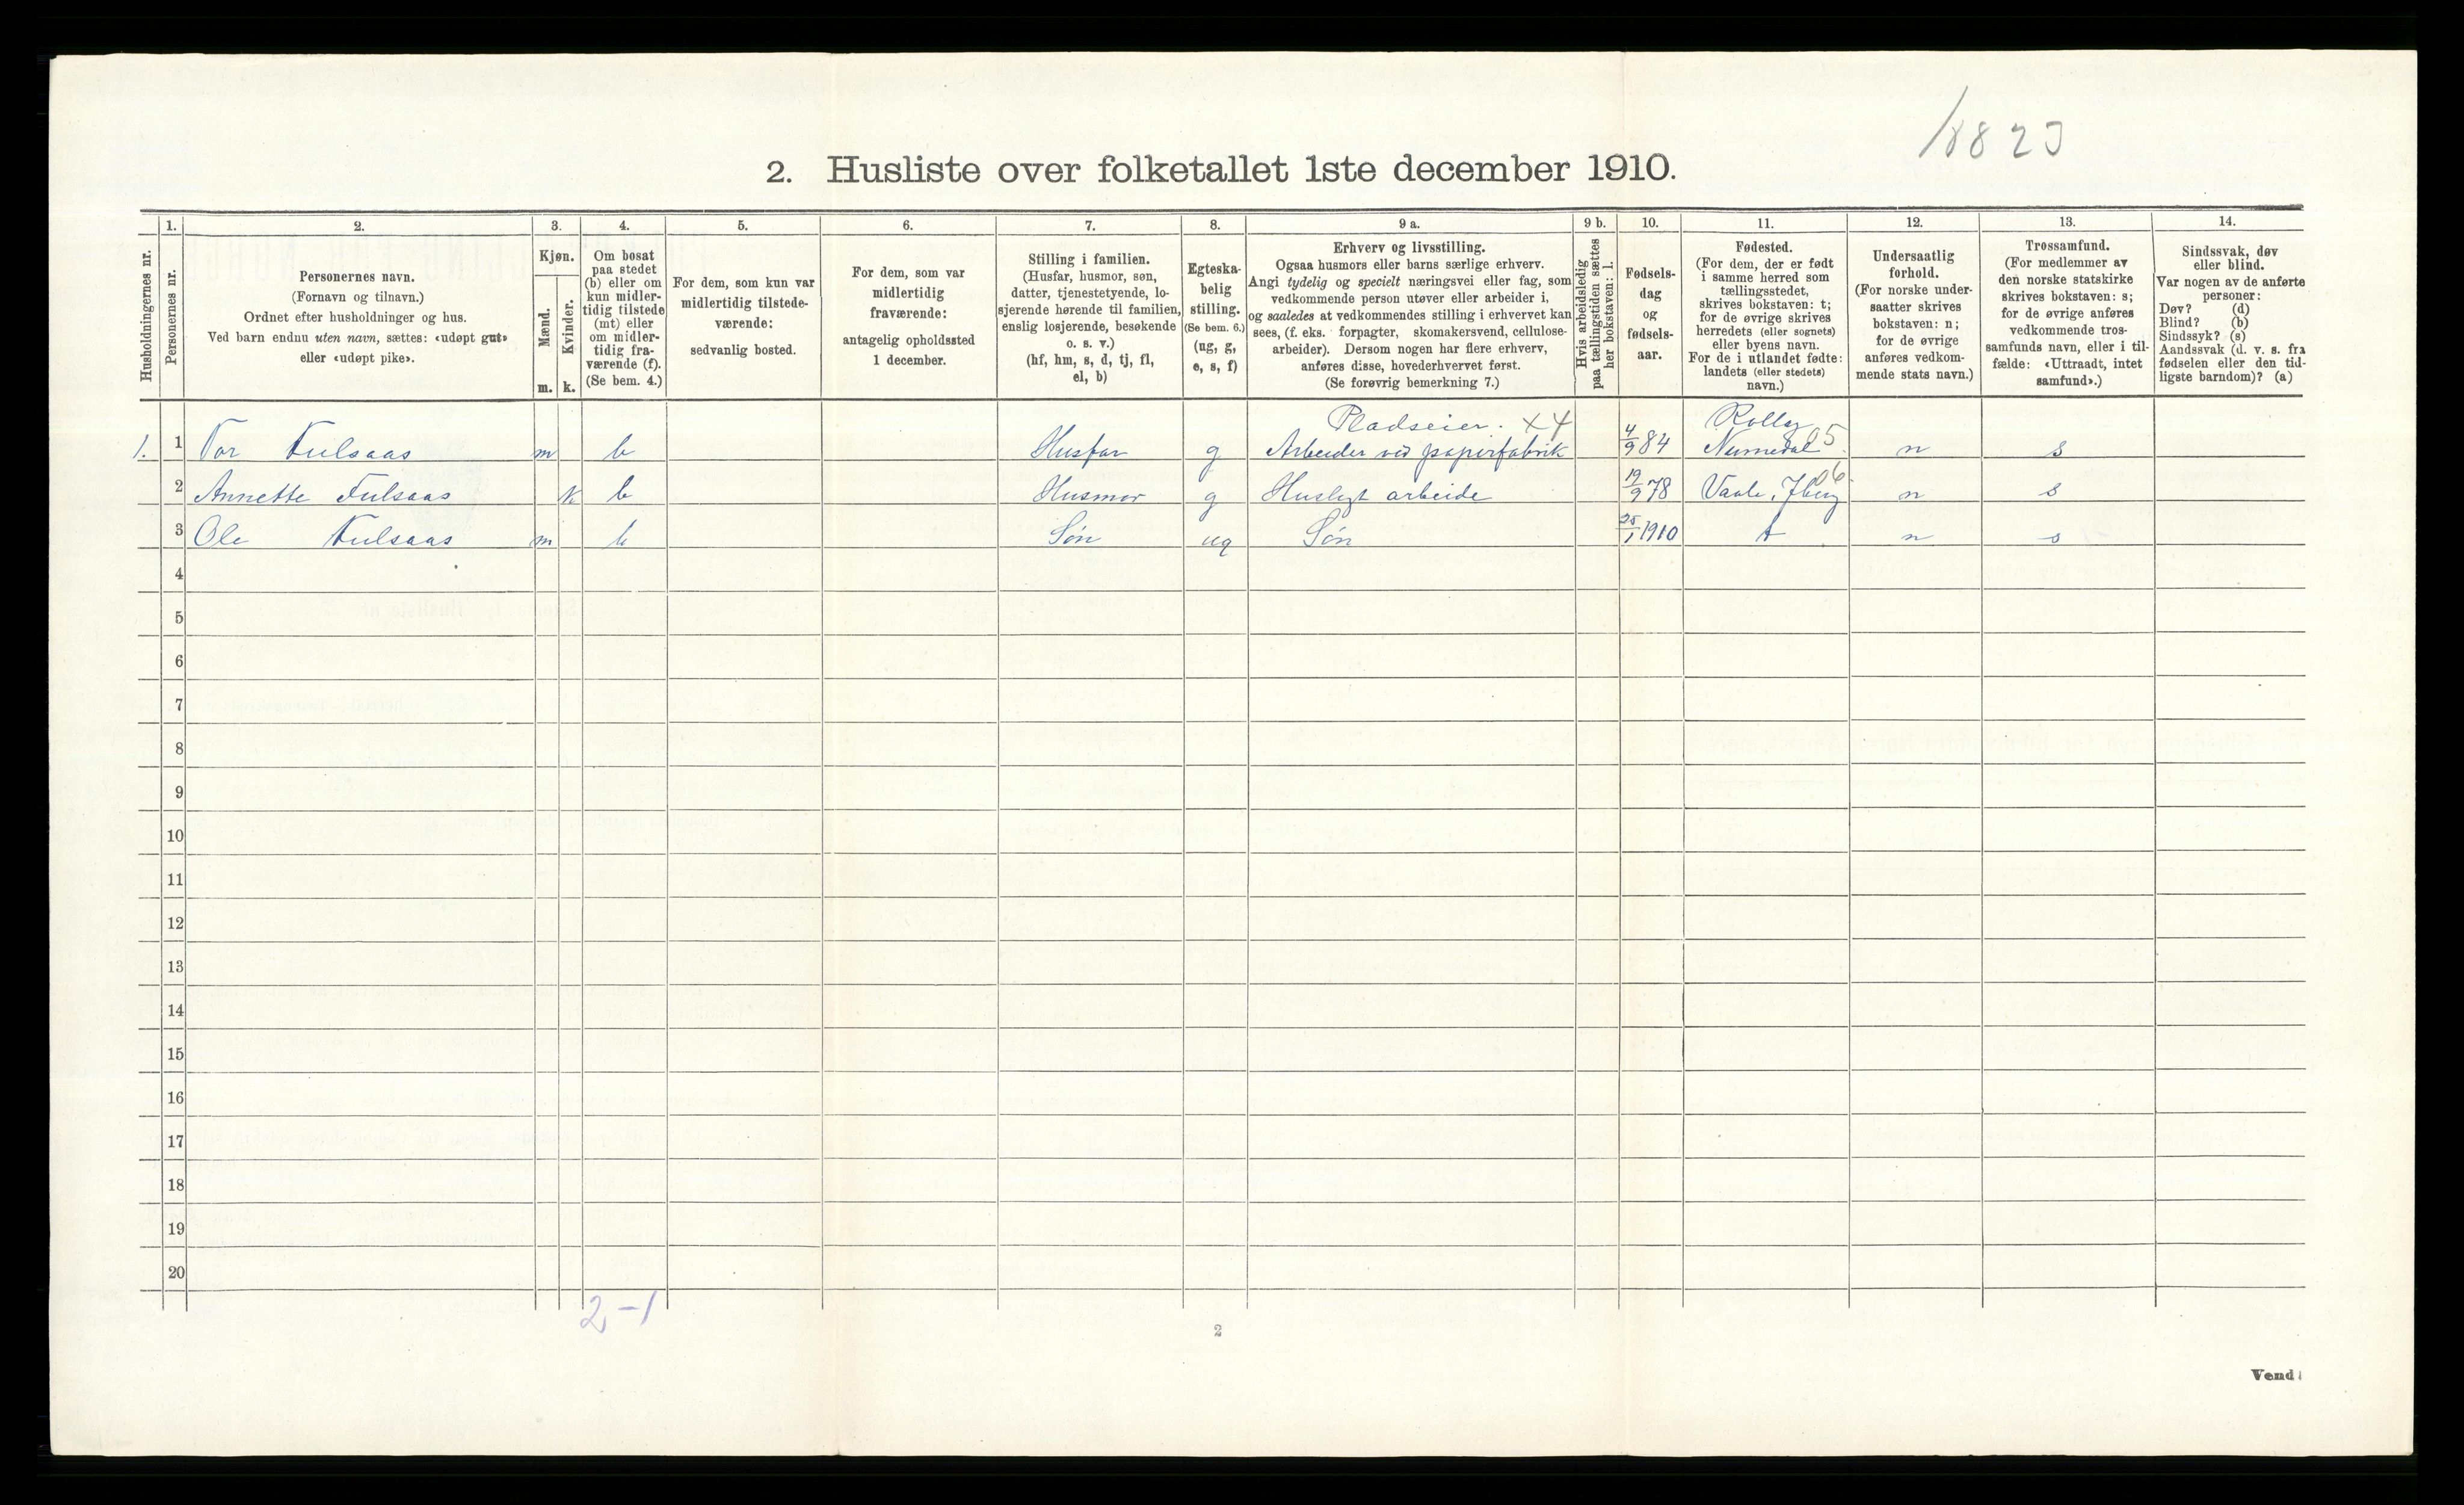 1882
2. Husliste over folketallet 1ste december 1910.
Husholdningernes nr.
1.
Personernes nr.
2.
Personernes navn.
(Fornavn og tilnavn.)
Ordnet efter husholdninger og hus.
Ved barn endnu uten navn, sættes: «udøpt gut»
eller «udøpt pike».
3.
Kjøn.
Mænd.
m.
Kvinder.
k.
4.
Om bosat
paa stedet
(b) eller om
kun midler-
tidig tilstede
(mt) eller
om midler-
tidig fra-
værende (f).
(Se bem. 4.)
5.
For dem, som kun var
midlertidig tilstede-
værende:
sedvanlig bosted.
6.
For dem, som var
midlertidig
fraværende:
antagelig opholdssted
1 december.
7.
Stilling i familien.
(Husfar, husmor, søn,
datter, tjenestetyende, lo-
sjerende hørende til familien,
enslig losjerende, besøkende
o. s. v.)
(hf, hm, s, d, tj, fl,
el, b)
8.
Egteska-
belig
stilling.
(Se bem. 6.)
(ug, g,
e, s, f)
9 a.
Erhverv og livsstilling.
Ogsaa husmors eller barns særlige erhverv.
Angi tydelig og specielt næringsvei eller fag, som
vedkommende person utøver eller arbeider i,
og saaledes at vedkommendes stilling i erhvervet kan
sees, (f. eks. forpagter, skomakersvend, cellulose-
arbeider). Dersom nogen har flere erhverv,
anføres disse, hovederhvervet først.
(Se forøvrig bemerkning 7.)
9 b.
Hvis arbeidsledig
paa tællingstiden sættes
her bokstaven: l.
10.
Fødsels-
dag
og
fødsels-
aar.
11.
Fødested.
(For dem, der er født
i samme herred som
tællingsstedet,
skrives bokstaven: t;
for de øvrige skrives
herredets (eller sognets)
eller byens navn.
For de i utlandet fødte:
landets (eller stedets)
navn.)
12.
Undersaatlig
forhold.
(For norske under-
saatter skrives
bokstaven: n;
for de øvrige
anføres vedkom-
mende stats navn.)
13.
Trossamfund.
(For medlemmer av
den norske statskirke
skrives bokstaven: s;
for de øvrige anføres
vedkommende tros-
samfunds navn, eller i til-
fælde: «Uttraadt, intet
samfund».)
14.
Sindssvak, døv
eller blind.
Var nogen av de anførte
personer:
Døv? (d)
Blind? (b)
Sindssyk? (s)
Aandssvak (d. v. s. fra
fødselen eller den tid-
ligste barndom)? (a)
Pladseier. x4 Rollag
1. 1 Tor Fulsaas m b Husfar g Arbeider ved papirfabrik 4/9 84 Numedal 05 n s
2 Annette Fulsaas k b Husmor g Husligt arbeide 19/9 78 Vaale, Jberg 06 n s
3 Ole Fulsaas m b Søn ug Søn 25/1 1910 t n s
4
5
6
7
8
9
10
11
12
13
14
15
16
17
18
19
20
2-1
2
Vend!